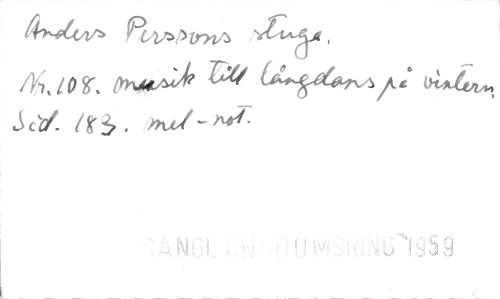 Anders Perssons stuga.
Nr. 108. musik till långdans på vintern.
Sid. 183. mel-not.
UNGDOMSRING 1959